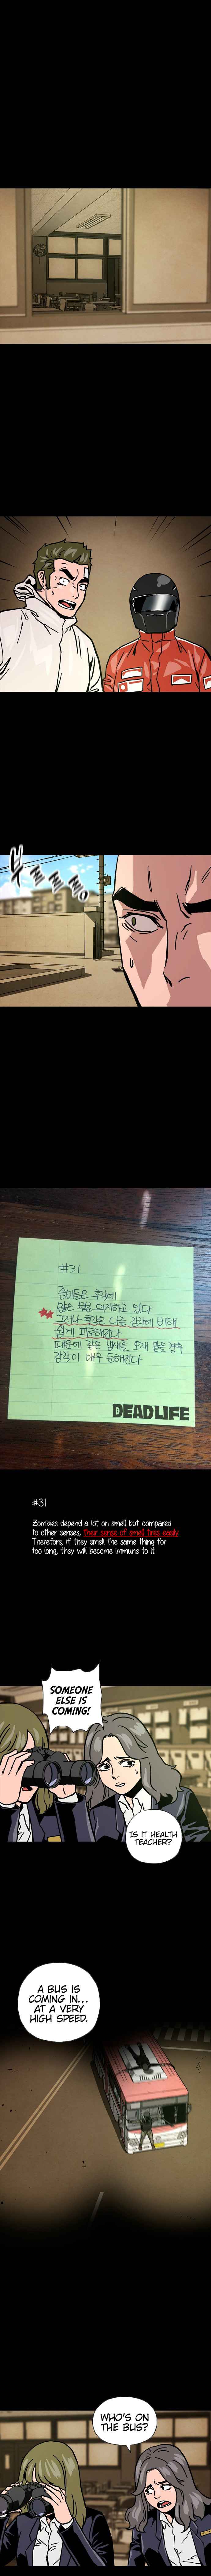 부르르르
#31
좀비들은 후각에
많은 부분 의지하고 있다
그러나 후각은 다른 감각에 비해
쉽게 피로해진다
때문에 같은 냄새를 오래 맡을 경우
감각이 매우 둔해진다
DEADLIFE
#31
Zombies depend a lot on smell but compared
to other senses, their sense of smell tires easily.
Therefore, if they smell the same thing for
too long, they will become immune to it.
SOMEONE
ELSE IS
COMING!
IS IT HEALTH
TEACHER?
A BUS IS
COMING IN...
AT A VERY
HIGH SPEED.
WHO'S ON
THE BUS?